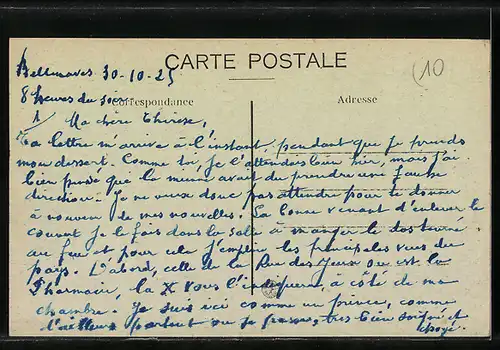 Bellenaves 30-10-25
CARTE POSTALE
(10
8 heures du soir
Correspondance
Adresse
1/ Ma chère Thérèse,
Ta lettre m'arrive à l'instant, pendant que je prends
mon dessert. Comme toi, je l'attendais bien hier, mais j'ai
bien pensé que la mienne avait dû prendre une fausse
direction. Je ne veux donc pas attendre pour te donner
à nouveau de mes nouvelles. La bonne venant d'enlever le
couvert je le fais dans la salle à manger le dos tourné
au feu et pour cela j'emploie les principales vues du
pays. D'abord, celle de la Rue des Jeux où est la
Pharmacie, la X vous l'indiquera, à côté de ma
chambre. Je suis ici comme un prince, comme
d'ailleurs partout où je passe, très bien soigné et